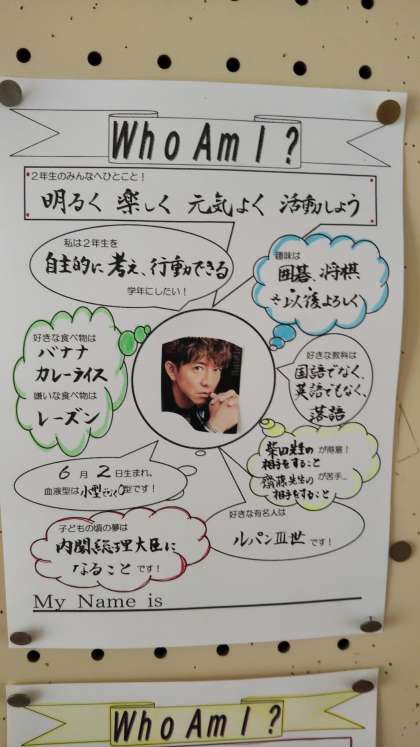 Who Am I ?
2年生のみんなへひとこと！
明るく 楽しく 元気よく 活動しよう
私は2年生を
自主的に考え、行動できる
学年にしたい！
趣味は
囲碁、将棋
以後よろしく
好きな食べ物は
バナナ
カレーライス
嫌いな食べ物は
レーズン
好きな教科は
国語でなく、
英語でもなく、
落語
柴田先生の
相手をすること
が得意！
齋藤先生の
相手をすること
が苦手…
6月2日生まれ、
血液型は小型でなくO型です！
好きな有名人は
ルパンⅢ世です！
子どもの頃の夢は
内閣総理大臣に
なることです！
My Name is
Who Am I ?